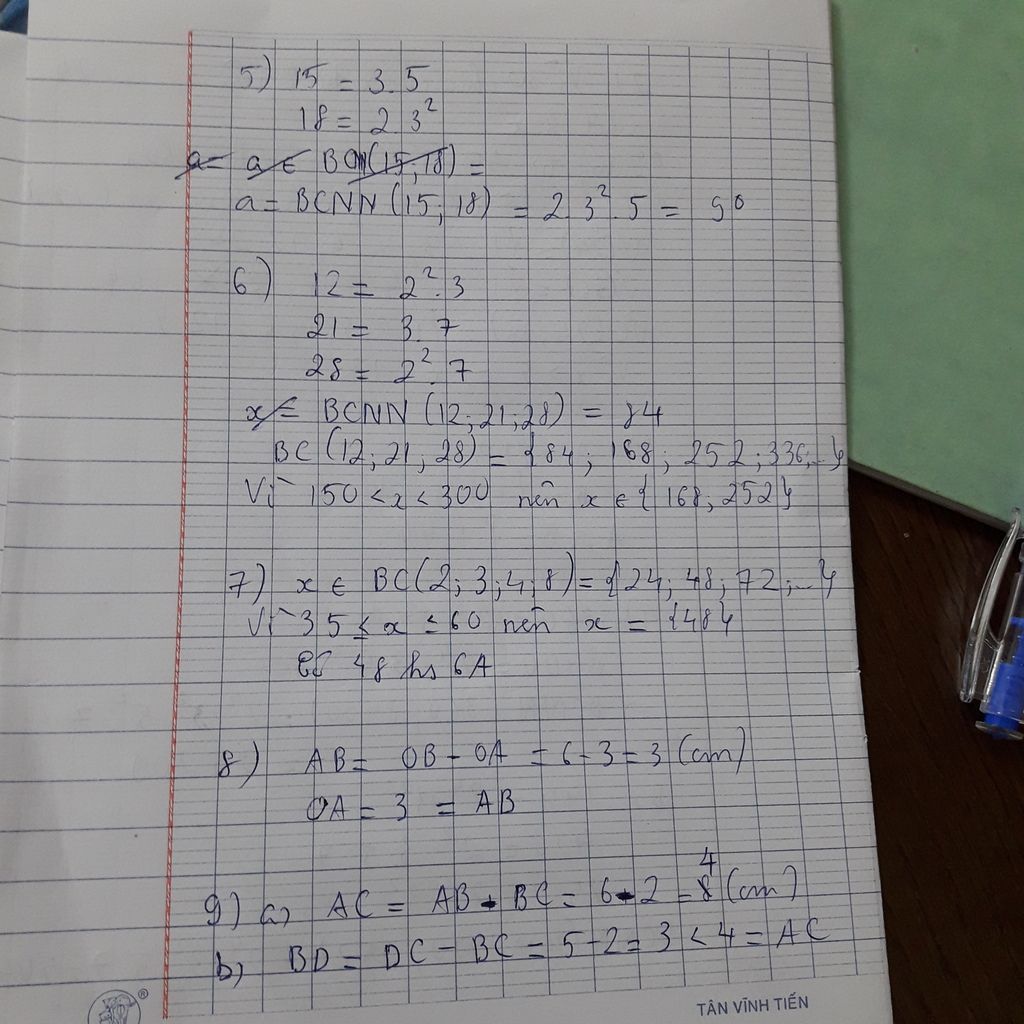 5) 15 = 3.5
18 = 2.3²
a = a ∈ BC(15, 18) =
a = BCNN (15; 18) = 2.3².5 = 90
6) 12 = 2².3
21 = 3.7
28 = 2².7
x ∈ BCNN (12; 21; 28) = 84
BC (12; 21; 28) = {84; 168; 252; 336; ...}
Vì 150 < x < 300 nên x ∈ {168; 252}
7) x ∈ BC(2; 3; 4; 8) = {24; 48; 72; ...}
Vì 35 ≤ x ≤ 60 nên x = {48}
Có 48 hs 6A
8) AB = OB - OA = 6 - 3 = 3 (cm)
OA = 3 = AB
9) a) AC = AB - BC = 6 - 2 = 4 (cm)
b) BD = DC - BC = 5 - 2 = 3 < 4 = AC
TÂN VĨNH TIẾN